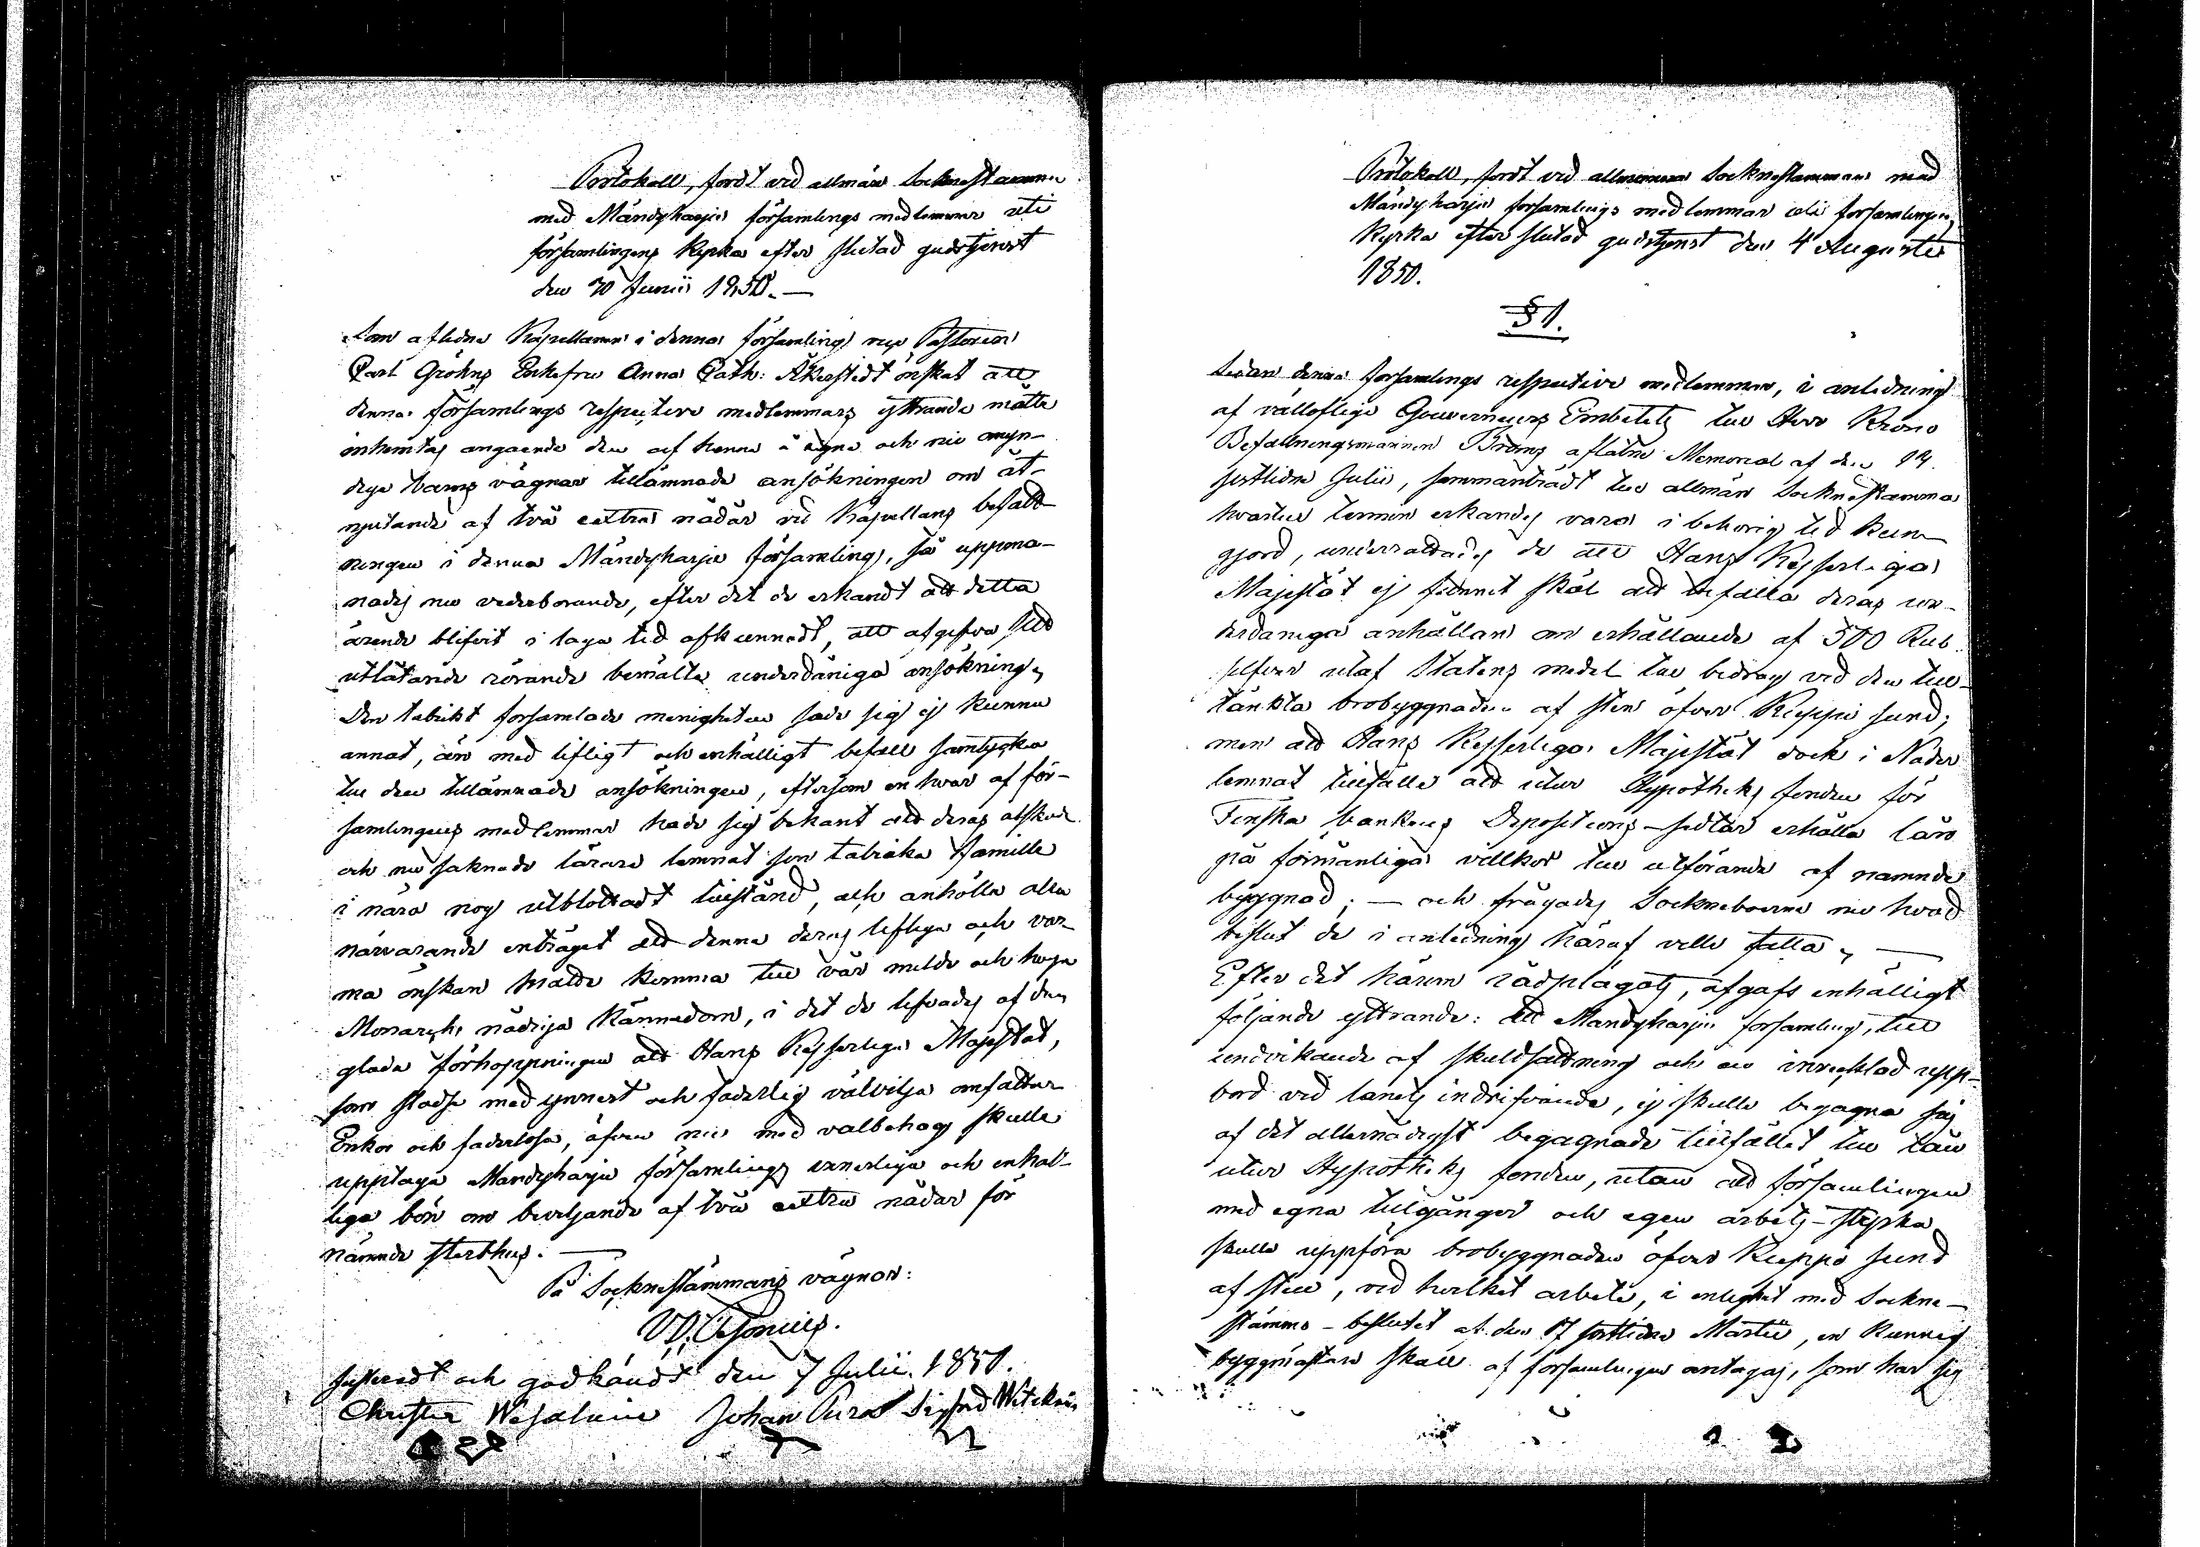 Protokoll, fördt vid allmän Sockenstämma
med Mändyharju församlings medlemmar uti
församlingens Kyrka efter slutad gudstjenst
den 30 Junii 1850. —
Som aflidne Kapellanen i denna församling, v. Pastoren
Carl Gröhns Enkefru Anna Cath: Åkerstedt önskat att
denna församlings respective medlemmars yttrande måtte
inhemtas angående den af henne å egna och sine omyn-
diga barns vägnar tillämnade ansökningen om åt-
njutande af två extra nådår vid Kapellans befatt-
ningen i denna Mändyharju församling, så uppma-
nades nu vederbörande, efter det de erkandt att detta
ärende blifvit i laga tid afkunnadt, att afgifva sitt
utlåtande rörande bemälte underdåniga ansökning,
Den talrikt församlade menigheten sade sig ej kunna
annat, än med lifligt och enhälligt bifall samtycka
till den tillämnade ansökningen, eftersom en hvar af för-
samlingens medlemmar hade sig bekant att deras älskade
och nu saknade lärare lemnat sin talrika familie
i nära nog utblottadt tillstånd, och anhölla alla
närvarande enträget att denna deras lifliga och var-
ma önskan måtte komma till vår milde och höge
Monarchs nådiga kännedom, i det de lifvades af den
glada förhoppningen att Hans Kejserliga Majestät,
som städse med ynnest och faderlig välvilja omfattar
Enkor och faderlösa, äfven nu med välbehag skulle
upptaga Mändyharju församlings innerliga och enhäl-
liga bön om beviljande af två extra nådår för
nämnde sterbhus. —
På Sockenstämmans vägnar:
Justeradt och godkändt den 7 Julii 1850.
Christer Johan Pura Sigfrid
Protokoll, fördt vid allmänna Sockenstämman med
Mändyharju församlings medlemmar uti församlingens
Kyrka efter slutad gudstjenst den 4 Augusti
1850.
§ 1.
Sedan denna församlings respective medlemmar, i anledning
af vällofliga Gouverneurs Embetets till Herr Krono
Befallningsmannen Bröms aflåtne Memorial af den 19.
sistlidne Julii, sammanträdt till allmän Sockenstämma
hvartill termin erkandes vara i behörig tid kun-
gjord, underrättades de att Hans Kejserliga
Majestät ej funnit skäl att bifalla deras un-
derdåniga anhållan om erhållande af 500 Rub.
silfver utaf Statens medel till bidrag vid den till-
tänkta brobyggnaden af sten öfver Kieppi sund;
men att Hans Kejserliga Majestät dock i Nåder
lemnat tillfälle att utur Hypotheks fonden för
Finska bankens Depositions-sedlar erhålla lån
på förmånliga villkor till utförande af nämnde
byggnad; — och frågades Sockneboerne nu hvad
beslut de i anledning häraf ville fatta, —
Efter det härom rådplägats, afgafs enhälligt
följande yttrande: att Mändyharju församling, till
undvikande af skuldsättning och en invecklad upp-
börd vid lånets indrifvande, ej skulle begagna sig
af det allernådigst begagnade tillfället till lån
utur Hypotheks fonden, utan att församlingen
med egna tillgångar och egen arbets-styrka
skulle uppföra brobyggnaden öfver Kieppi sund
af sten, vid hvilket arbete, i enlighet med Sockne-
stämmo-beslutet af den 17 sistlidne Martii, en kunnig
byggmästare skall af församlingen antagas, som har sig